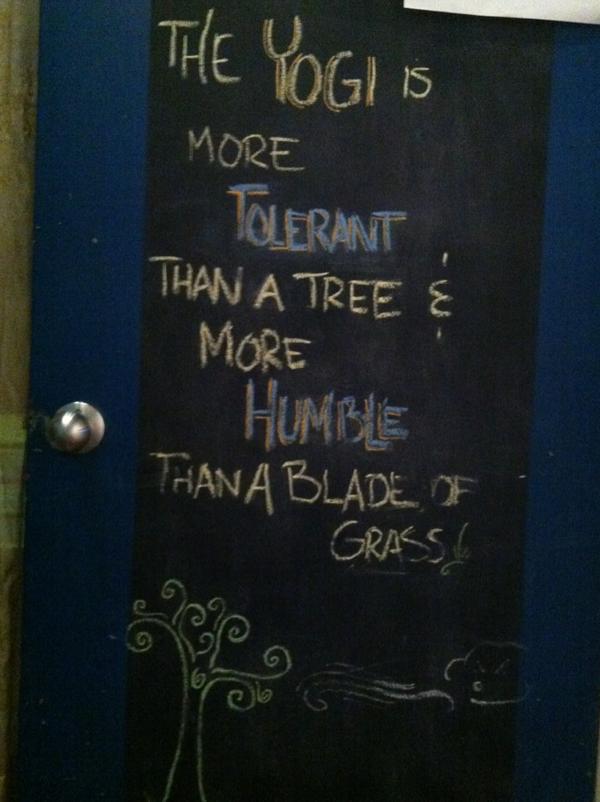 THE YOGI IS
MORE
TOLERANT
THAN A TREE &
MORE
HUMBLE
THAN A BLADE OF
GRASS